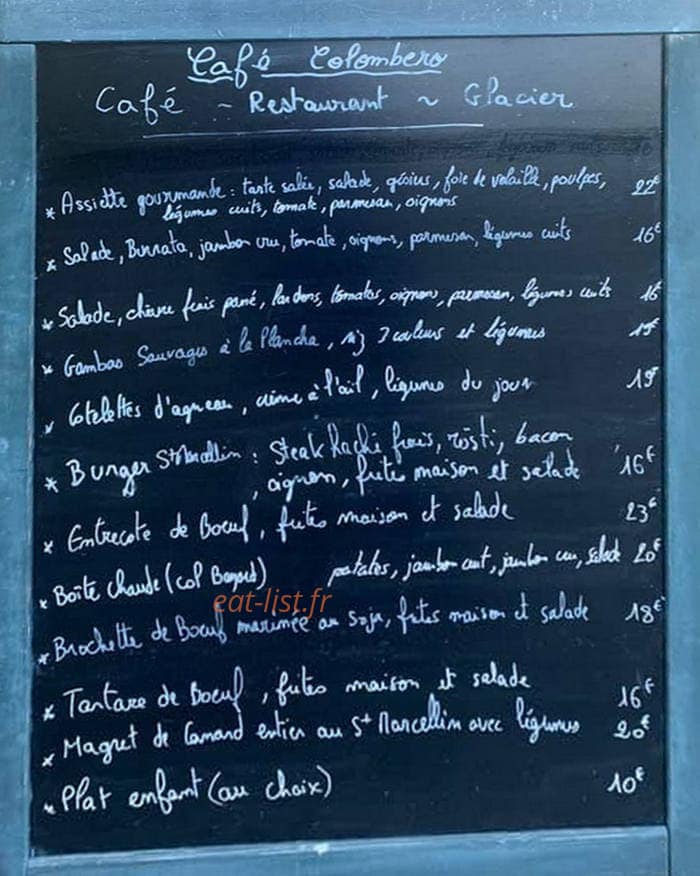 Café Colombero
Café ~ Restaurant ~ Glacier
* Assiette gourmande : tarte salée, salade, gésiers, foie de volaille, poulpes, 22€
légumes cuits, tomate, parmesan, oignons
* Salade, Burrata, jambon cru, tomate, oignons, parmesan, légumes cuits 16€
* Salade, chèvre frais pané, lardons, tomates, oignons, parmesan, légumes cuits 16
* Gambas Sauvages à la Plancha, riz 3 couleurs et légumes
* Cotelettes d'agneau, crème à l'ail, légumes du jour 19€
* Burger St Marcellin : Steak haché frais, rösti, bacon
, oignon, frites maison et salade 16€
* Entrecote de Boeuf, frites maison et salade 23€
* Boîte chaude (col Bayard) patates, jambon cuit, jambon cru, salade 20€
eat-list.fr
* Brochette de Boeuf marinée au soja, frites maison et salade 18€
* Tartare de Boeuf, frites maison et salade 16€
* Magret de Canard entier au St Marcellin avec légumes 20€
* Plat enfant (au choix) 10€